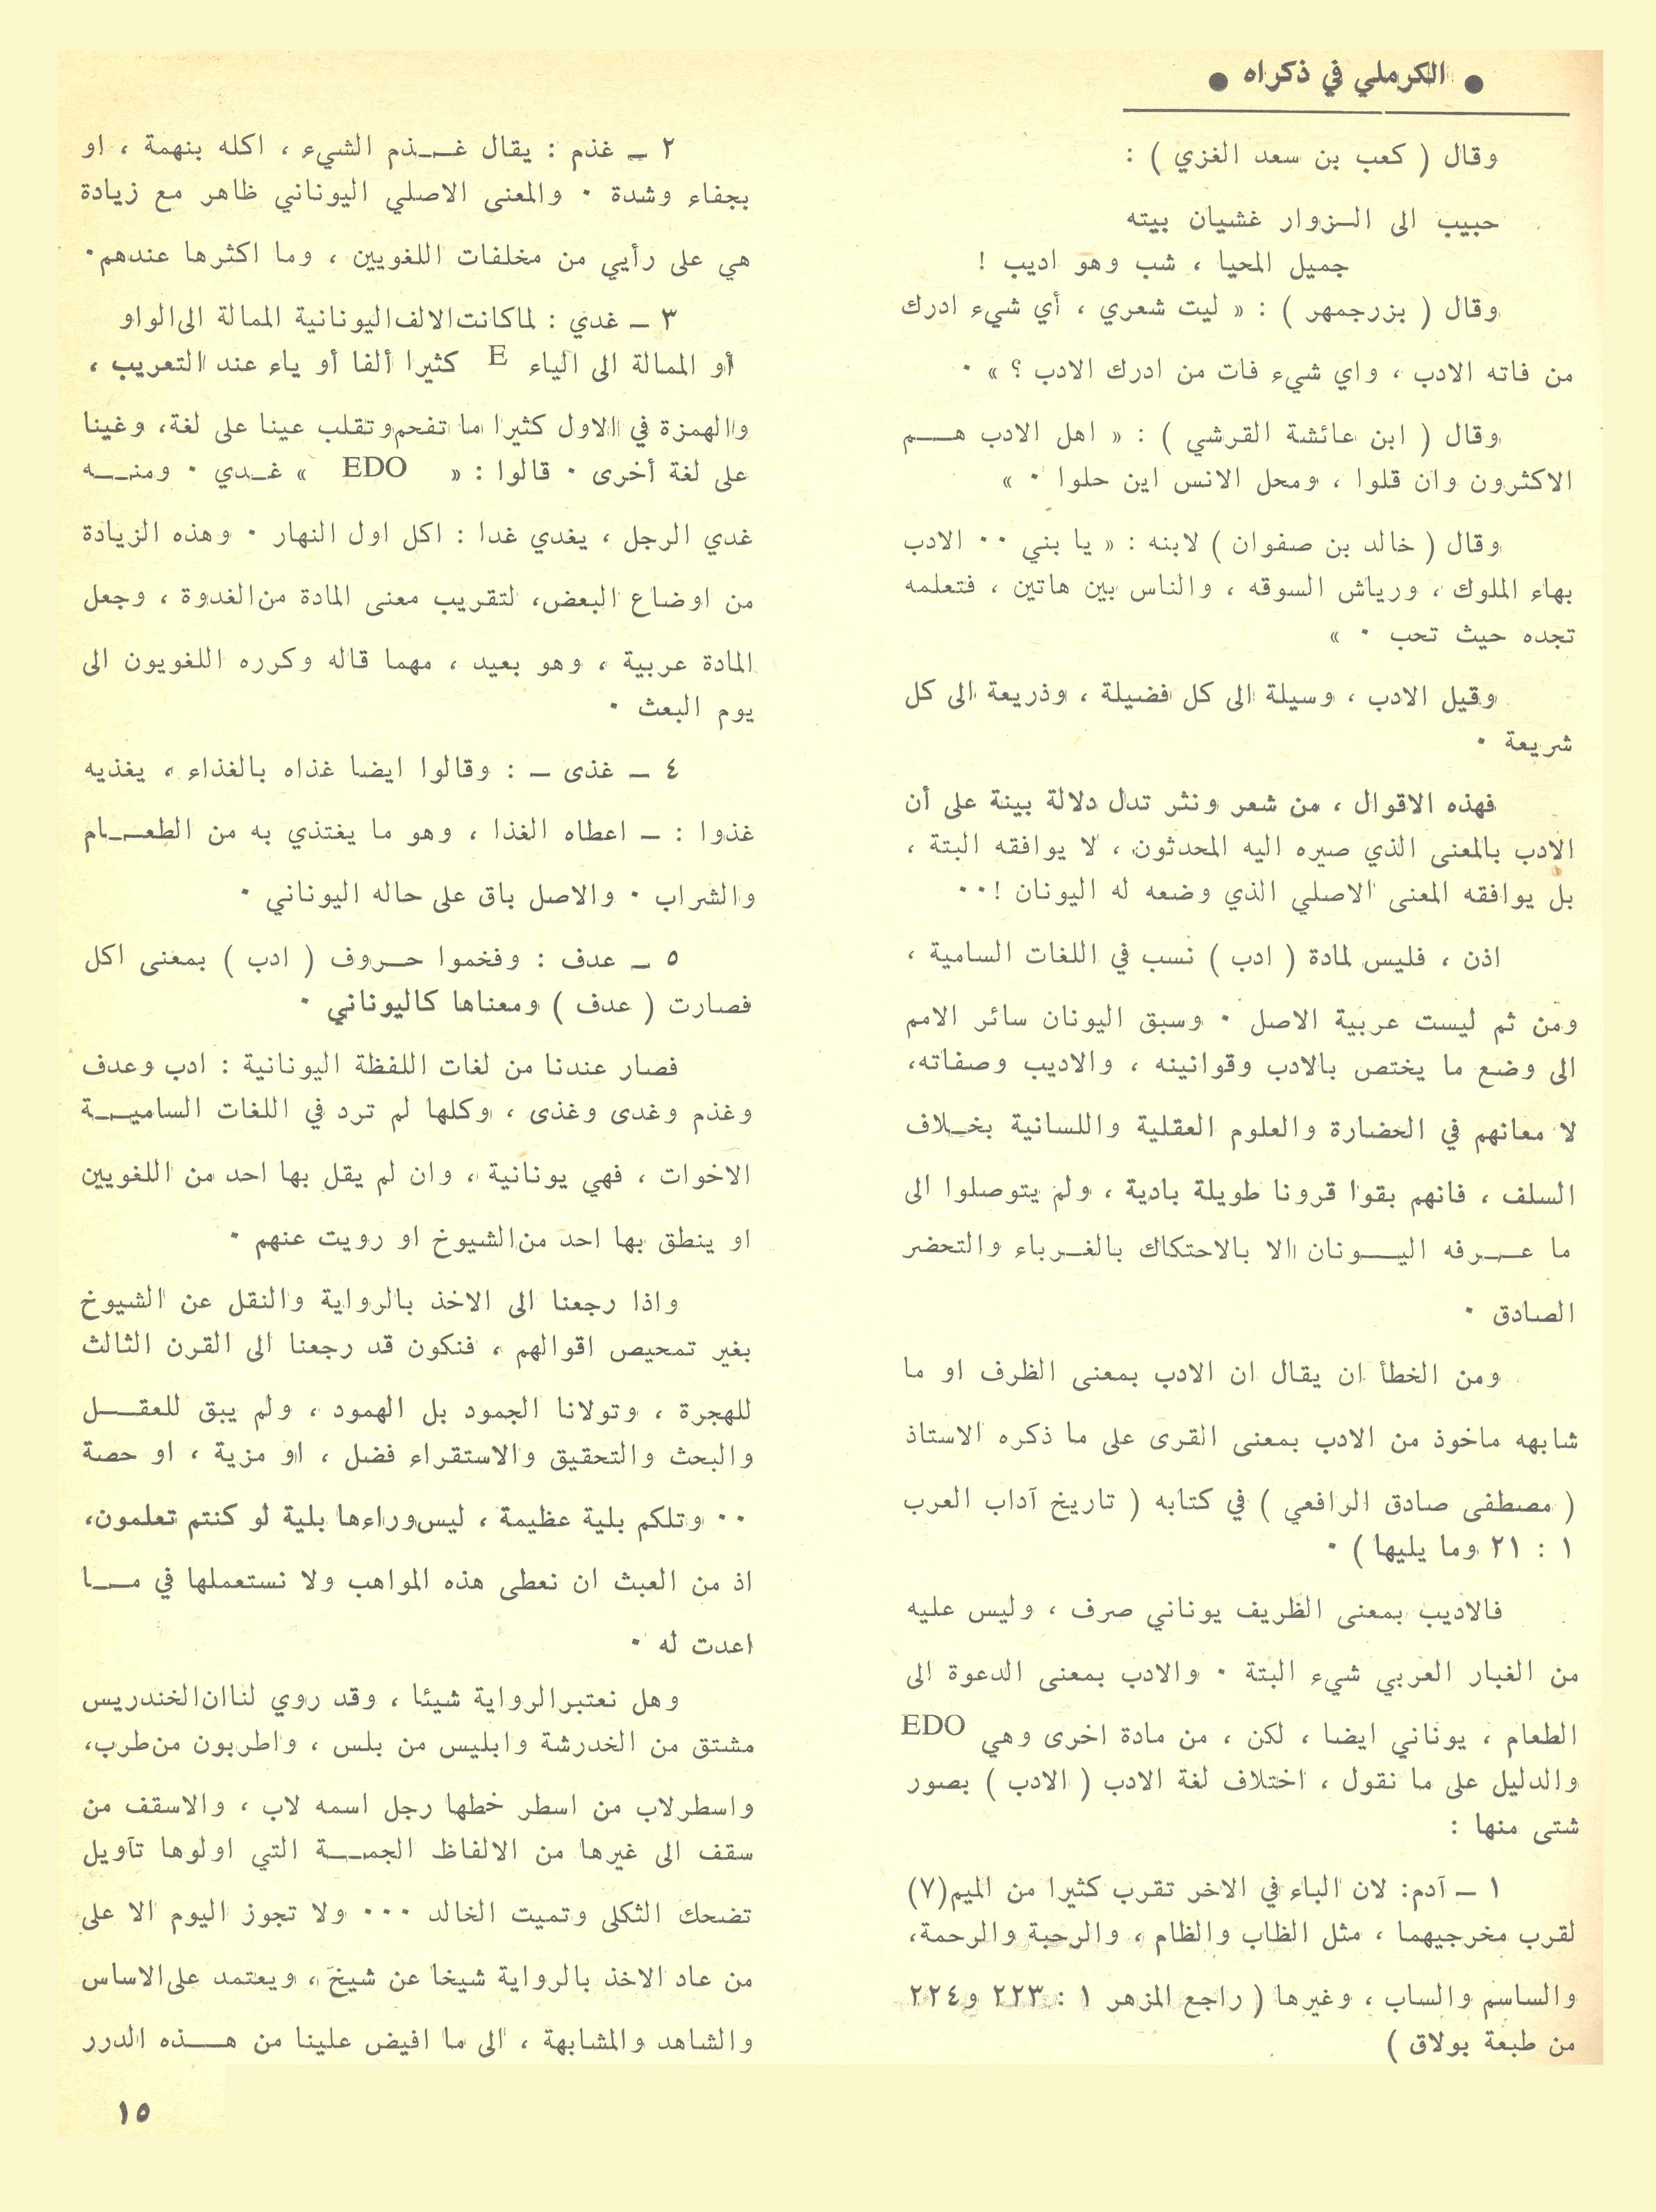 ● الكرملي في ذكراه ●
وقال ( كعب بن سعد الغزي ) :
حبيب الى الـزوار غشيان بيته
جميل المحيا ، شب وهو اديب !
وقال ( بزرجمهر ) : « ليت شعري ، أي شيء ادرك
من فاته الادب ، واي شيء فات من ادرك الادب ؟ » ٠
وقال ( ابن عائشة القرشي ) : « اهل الادب هـــم
الاكثرون وان قلوا ، ومحل الانس اين حلوا ٠ »
وقال ( خالد بن صفوان ) لابنه : « يا بني ٠٠ الادب
بهاء الملوك ، ورياش السوقه ، والناس بين هاتين ، فتعلمه
تجده حيث تحب ٠ »
وقيل الادب ، وسيلة الى كل فضيلة ، وذريعة الى كل
شريعة ٠
فهذه الاقوال ، من شعر ونثر تدل دلالة بينة على أن
الادب بالمعنى الذي صيره اليه المحدثون ، لا يوافقه البتة ،
بل يوافقه المعنى الاصلي الذي وضعه له اليونان !٠٠
اذن ، فليس لمادة ( ادب ) نسب في اللغات السامية ،
ومن ثم ليست عربية الاصل ٠ وسبق اليونان سائر الامم
الى وضع ما يختص بالادب وقوانينه ، والاديب وصفاته،
لا معانهم في الحضارة والعلوم العقلية واللسانية بخـلاف
السلف ، فانهم بقوا قرونا طويلة بادية ، ولم يتوصلوا الى
ما عــرفه اليـــونان الا بالاحتكاك بالغـرباء والتحضر
الصادق ٠
ومن الخطأ ان يقال ان الادب بمعنى الظرف او ما
شابهه ماخوذ من الادب بمعنى القرى على ما ذكره الاستاذ
( مصطفى صادق الرافعي ) في كتابه ( تاريخ آداب العرب
١ : ٢١ وما يليها ) ٠
فالاديب بمعنى الظريف يوناني صرف ، وليس عليه
من الغبار العربي شيء البتة ٠ والادب بمعنى الدعوة الى
الطعام ، يوناني ايضا ، لكن ، من مادة اخرى وهي EDO
والدليل على ما نقول ، اختلاف لغة الادب ( الادب ) بصور
شتى منها :
١ ـ آدم: لان الباء في الاخر تقرب كثيرا من الميم(٧)
لقرب مخرجيهما ، مثل الظاب والظام ، والرحبة والرحمة،
والساسم والساب ، وغيرها ( راجع المزهر ١ : ٢٢٣ و٢٢٤
من طبعة بولاق )
٢ ـ غذم : يقال غــذم الشيء ، اكله بنهمة ، او
بجفاء وشدة ٠ والمعنى الاصلي اليوناني ظاهر مع زيادة
هي على رأيي من مخلفات اللغويين ، وما اكثرها عندهم٠
٣ ـ غدي : لما كانت الالف اليونانية الممالة الى الواو
أو الممالة الى الياء E كثيرا ألفا أو ياء عند التعريب ،
والهمزة في الاول كثيرا ما تفحم وتقلب عينا على لغة، وغينا
على لغة أخرى ٠ قالوا : « EDO » غـدي ٠ ومنـــه
غدي الرجل ، يغدي غدا : اكل اول النهار ٠ وهذه الزيادة
من اوضاع البعض، لتقريب معنى المادة من الغدوة ، وجعل
المادة عربية ، وهو بعيد ، مهما قاله وكرره اللغويون الى
يوم البعث ٠
٤ ـ غذى ـ : وقالوا ايضا غذاه بالغذاء ، يغذيه
غذوا : ـ اعطاه الغذا ، وهو ما يغتذي به من الطعـــام
والشراب ٠ والاصل باق على حاله اليوناني ٠
٥ ـ عدف : وفخموا حـروف ( ادب ) بمعنى اكل
فصارت ( عدف ) ومعناها كاليوناني ٠
فصار عندنا من لغات اللفظة اليونانية : ادب وعدف
وغذم وغدى وغذى ، وكلها لم ترد في اللغات الساميــة
الاخوات ، فهي يونانية ، وان لم يقل بها احد من اللغويين
او ينطق بها احد من الشيوخ او رويت عنهم ٠
واذا رجعنا الى الاخذ بالرواية والنقل عن الشيوخ
بغير تمحيص اقوالهم ، فنكون قد رجعنا الى القرن الثالث
للهجرة ، وتولانا الجمود بل الهمود ، ولم يبق للعقـــل
والبحث والتحقيق والاستقراء فضل ، او مزية ، او حصة
٠٠ وتلكم بلية عظيمة ، ليس وراءها بلية لو كنتم تعلمون،
اذ من العبث ان نعطى هذه المواهب ولا نستعملها في مـــا
اعدت له ٠
وهل نعتبر الرواية شيئا ، وقد روي لنا ان الخندريس
مشتق من الخدرشة وابليس من بلس ، واطربون من طرب،
واسطرلاب من اسطر خطها رجل اسمه لاب ، والاسقف من
سقف الى غيرها من الالفاظ الجمــة التي اولوها تآويل
تضحك الثكلى وتميت الخالد ٠٠٠ ولا تجوز اليوم الا على
من عاد الاخذ بالرواية شيخا عن شيخ ، ويعتمد على الاساس
والشاهد والمشابهة ، الى ما افيض علينا من هـــذه الدرر
١٥